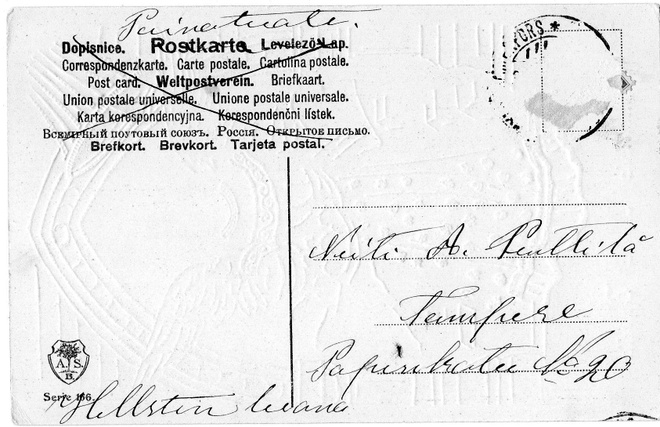 Painotuote.
Dopisnice. Postkarte. Levelező-Lap.
Correspondenzkarte. Carte postale. Cartolina postale.
Post card. Weltpostverein. Briefkaart.
Union postale universelle. Unione postale universale.
Karta korespondencyjna. Korespondenční lístek.
Всемірный почтовый союзъ. Россія. Открытое письмо.
Brefkort. Brevkort. Tarjeta postal.
Neiti A. Penttilä
Tampere
No 20
A. S.
B.
Serie 166.